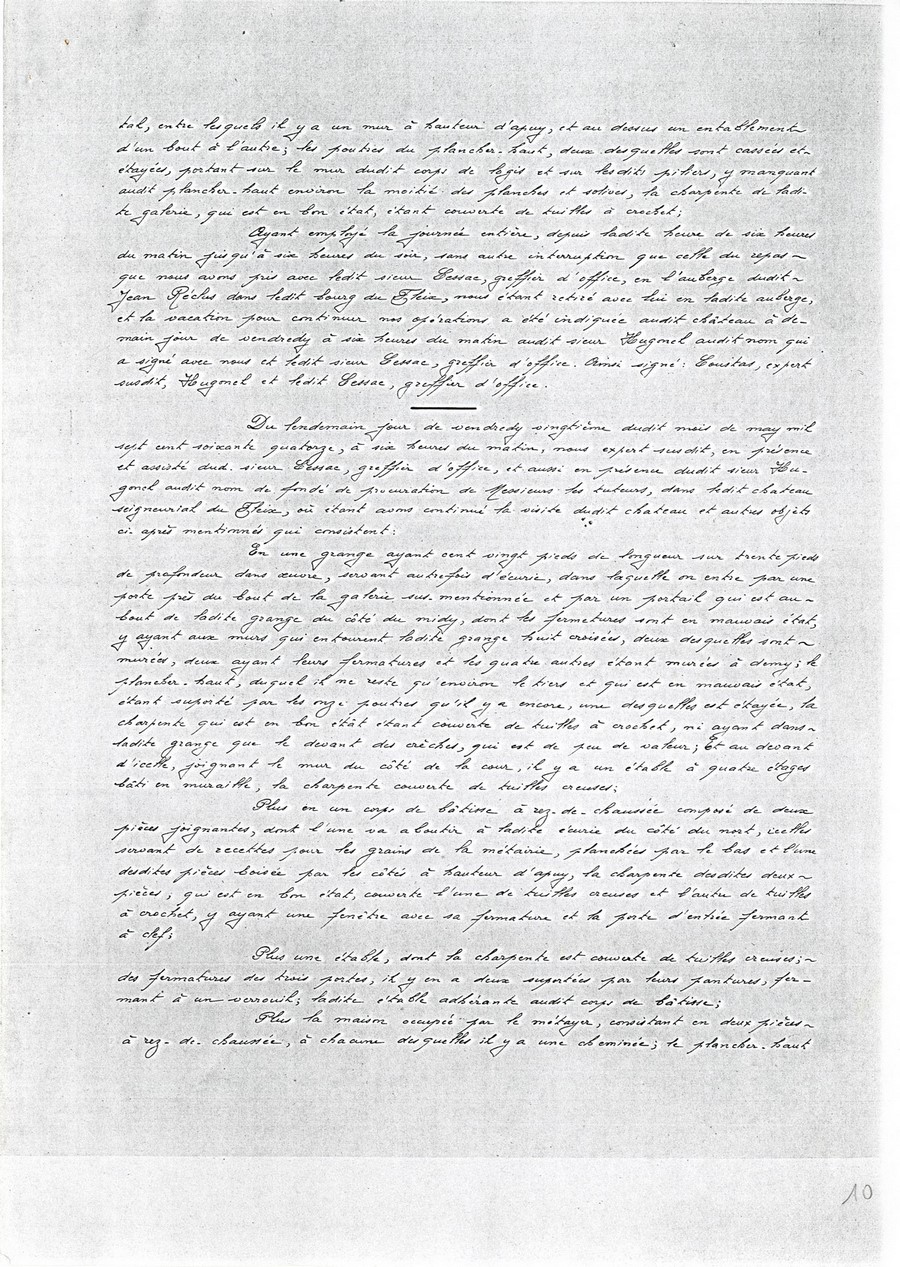 tal, entre lesquels il y a un mur à hauteur d'apuy, et au dessus un entablement
d'un bout à l'autre; les poutres du plancher-haut, deux desquelles sont cassées et
étayées, portant sur le mur dudit corps de logis et sur lesdits piliers, y manquant
audit plancher-haut environ la moitié des planches et solives, la charpente de ladi-
te galerie, qui est en bon état, étant couverte de tuilles à crochet;
Ayant employé la journée entière, depuis ladite heure de six heures
du matin jusqu'à six heures du soir, sans autre interruption que celle du repas
que nous avons pris avec ledit sieur Lessac, greffier d'office, en l'auberge dudit
Jean Réclus dans ledit bourg du Fleix, nous étant retiré avec lui en ladite auberge,
et la vacation pour continuer nos opérations a été indiquée audit château à de-
main jour de vendredy à six heures du matin audit sieur Hugonel audit nom qui
a signé avec nous et ledit sieur Lessac, greffier d'office. Ainsi signé: Coustas, expert
susdit, Hugonel et ledit Lessac, greffier d'office.
Du lendemain jour de vendredy vingtième dudit mois de may mil
sept cent soixante quatorze, à six heures du matin, nous expert susdit, en présence
et assisté dud. sieur Lessac, greffier d'office, et aussi en présence dudit sieur Hu-
gonel audit nom de fondé de procuration de Messieurs les tuteurs, dans ledit chateau
seigneurial du Fleix, où étant avons continué la visite dudit chateau et autres objets
ci-après mentionnés qui consistent:
En une grange ayant cent vingt pieds de longueur sur trente pieds
de profondeur dans œuvre, servant autrefois d'écurie, dans laquelle on entre par une
porte près du bout de la galerie sus-mentionnée et par un portail qui est au
bout de ladite grange du côté du midy, dont les fermetures sont en mauvais état,
y ayant aux murs qui entourent ladite grange huit croisées, deux desquelles sont
murées, deux ayant leurs fermatures et les quatre autres étant murées à demy; le
plancher-haut, duquel il ne reste qu'environ le tiers et qui est en mauvais état,
étant suporté par les onze poutres qu'il y a encore, une desquelles est étayée, la
charpente qui est en bon état étant couverte de tuilles à crochet, ni ayant dans
ladite grange que le devant des crèches, qui est de peu de valeur; Et au devant
d'icelle, joignant le mur du côté de la cour, il y a un étable à quatre étages
bâti en muraille, la charpente couverte de tuilles creuses;
Plus en un corps de bâtisse à rez-de-chaussée composé de deux
pièces joignantes, dont l'une va aboutir à ladite écurie du côté du nort, icelles
servant de recettes pour les grains de la métairie, planchées par le bas et l'une
desdites pièces boisée par les côtés à hauteur d'apuy, la charpente desdites deux
pièces, qui est en bon état, couverte l'une de tuilles creuses et l'autre de tuilles
à crochet, y ayant une fenêtre avec sa fermature et la porte d'entrée fermant
à clef;
Plus une étable, dont la charpente est couverte de tuilles creuses;
des fermatures des trois portes, il y en a deux suportées par leurs pantures, fer-
mant à un verrouil; ladite étable adhérante audit corps de bâtisse;
Plus la maison occupée par le métayer, consistant en deux pièces
à rez-de-chaussée, à chacune desquelles il y a une cheminée; le plancher-haut
10